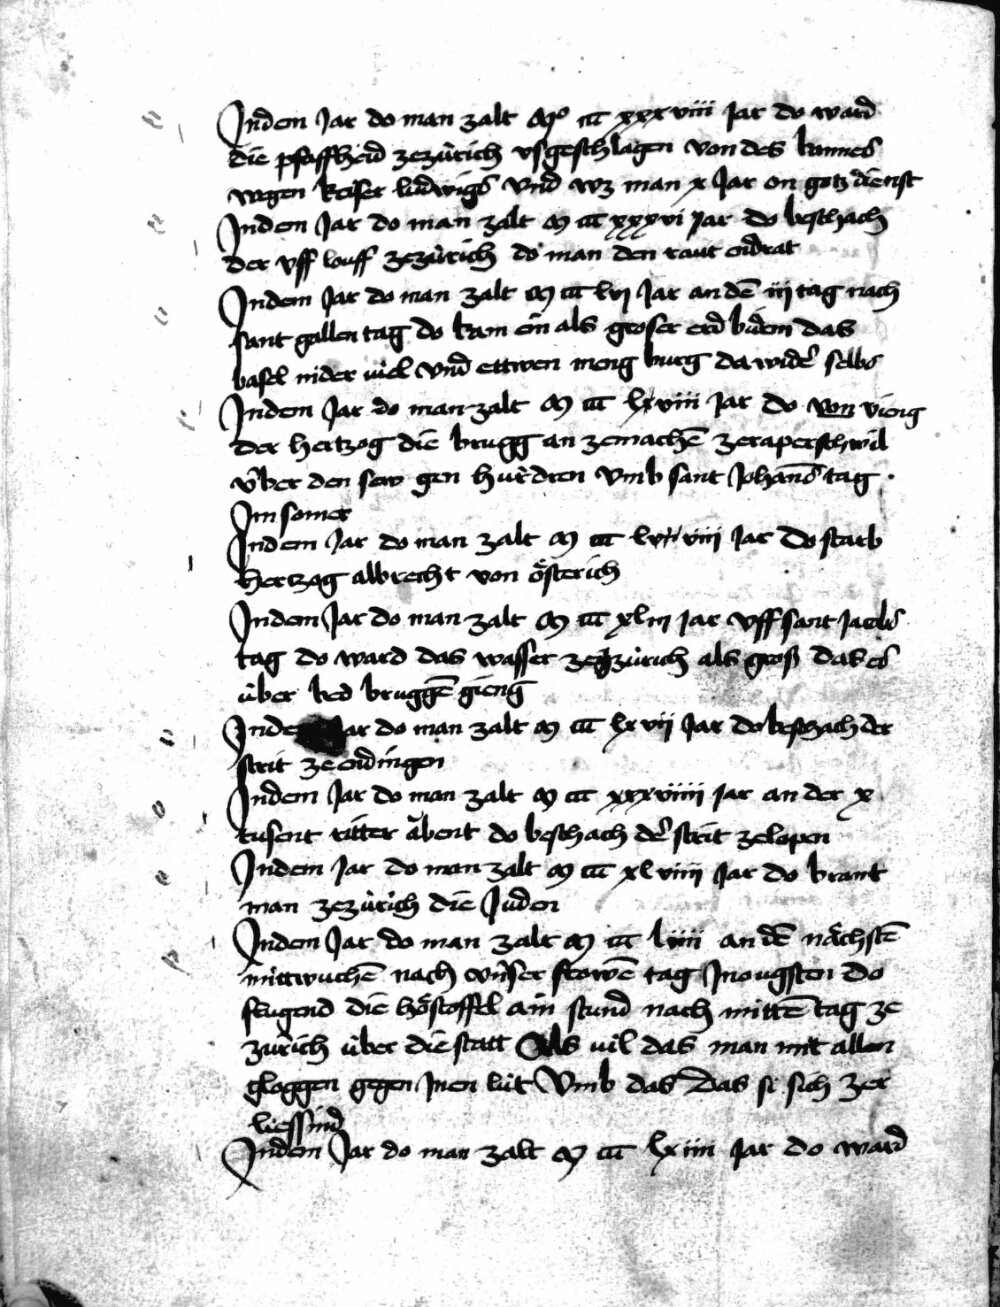 Jndem Jar do man zalt Mº ccc xxxviii Jar do ward
die pfaffheid zezürich usgeschlagen von des bannes
wegen keiser ludwigs vnd wz man x Jar on gotz dienst
Jndem Jar do man zalt M ccc xxxvi Jar do beschach
der vff louff zezürich do man den raut endrat
Jndem Jar do man zalt M ccc lvj Jar an dē iij tag nach
sant gallen tag do kam ein als groser erd bidem das
basel nider viel vnd ettwen meng burg da wider selbs
Jndem Jar do man zalt M ccc lxviii Jar do vieng
der hertzog die brugg an zemachē zeraperschwil
über den sew gen hurdren vmb sant Johans tag
Jm somer
Jndem Jar do man zalt M ccc viii Jar do starb
hertzog albrecht von österich
Jndem Jar do man zalt M ccc xliii Jar vff sant Jacobs
tag do ward das wasser zezürich als groß das es
über bed bruggē gieng
Jnde Jar do man zalt M ccc lxvii Jar do beschach der
strit ze endingen
Jndem Jar do man zalt M ccc xxxviiii Jar an der x
tusent ritter abent do beschach der strit zelopen
Jndem Jar do man zalt M ccc xlviiii Jar do brant
man zezürich die Juden
Jndem Jar do man zalt M ccc liiii an dē nächstē
mittwuchē nach vnser frowē tag Jn ougsten do
flugend die höstoffel ain stund nach mittē tag ze
zürich über die statt Als vil das man mit allen
gloggen gegen Jnen lüt Vmb das Das si sich zer
liessind
Jndem Jar do man zalt M ccc lxiiii Jar do ward